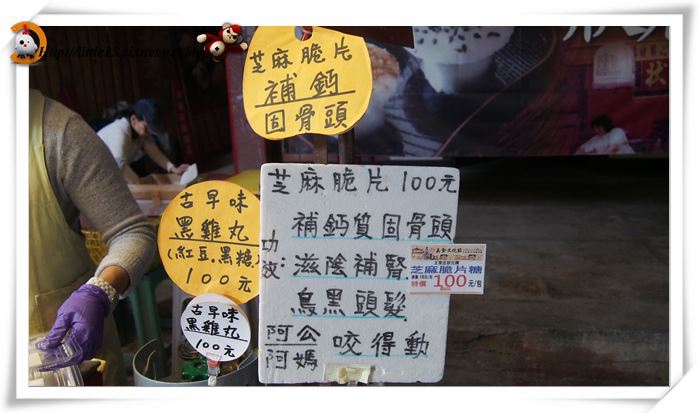 芝麻脆片
補鈣
固骨頭
芝麻脆片 100元
補鈣質固骨頭
功效:
滋陰補腎
烏黑頭髮
阿公
阿媽
咬得動
古早味
黑雞丸
(紅豆.黑糖)
100元
古早味
黑雞丸
100元
芝麻脆片糖
特價100元/包